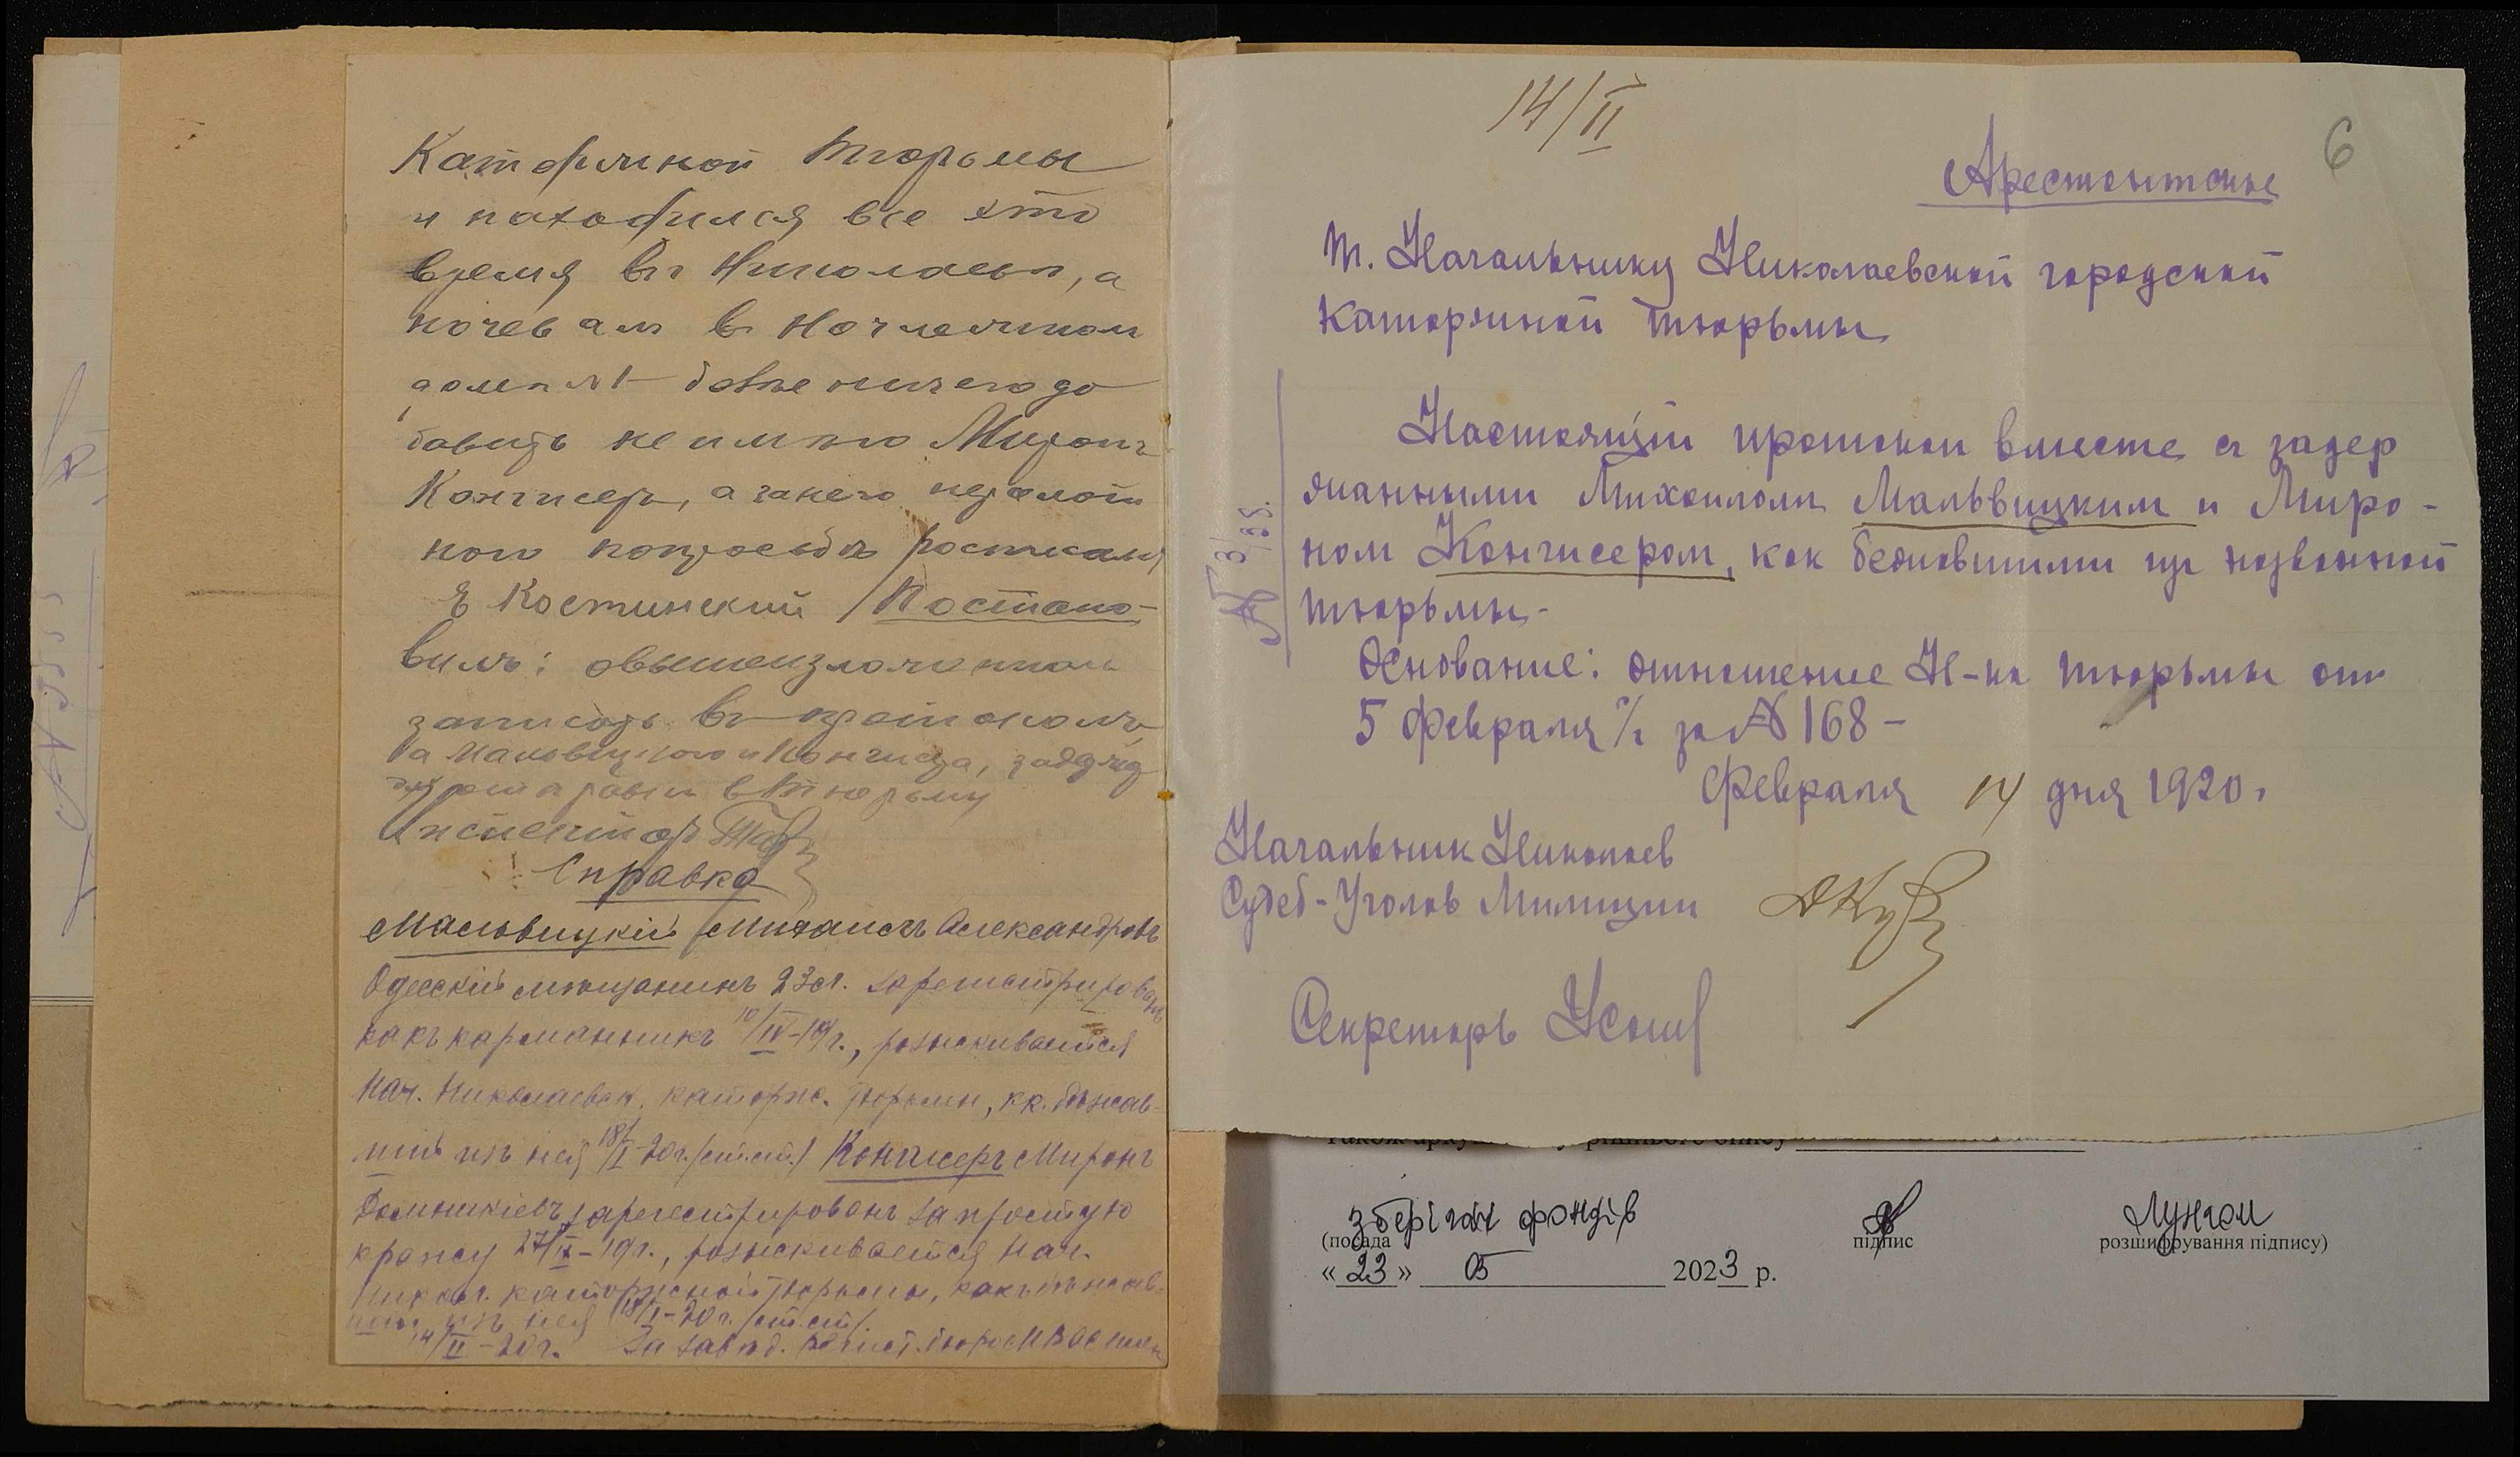 Каторжной тюрьмы
и находился все это
время въ Николаевѣ, а
ночевалъ в Ночлежном
домѣ № 1 – более ничего до
бавить не имѣю Миронъ
Конгисеръ, а за него неграмот
ного по просьбѣ росписался
Я Костинский / Постано-
вилъ: о вышеизложенномъ
записать въ протоколъ
а Мальвицкого и Конгисера, задерж
отправить в тюрьму
Инспектор
Справка
Мальвицкій Михаилъ Александровъ
Одесскій мѣщанинъ 23 л. зарегистрированъ
какъ карманникъ 10/IV-19г., розыскивается
Нач. Николаевск. каторж. тюрьмы, кк. бѣжав-
шій изъ нея 18/I-20г. /ст.ст./ Конгисеръ Миронъ
зарегистрированъ за простую
кражу 27/IX-19г., розыскивается Нач.
Никол. каторжной тюрьмы, какъ бѣжав-
шій изъ нея 18/I-20г. /ст.ст/.
14/II-20г. За завѣд. регист. бюро
14/II
6
Арестантские
Т. Начальнику Николаевской городской
каторжной тюрьмы
Настоящий протокол вместе с задер
жанными Михаилом Мальвицким и Миро-
ном Конгисером, как бежавшими из названной
тюрьмы-
Основание: отношение Н-ка тюрьмы от
5 февраля с/г за № 168 –
Февраля 14 дня 1920 г
Начальник Николаев
Судеб-Уголов Милиции
Секретарь
№
зберігач фондів
(посада
підпис
розшифрування підпису)
« 23 » 05 2023 р.